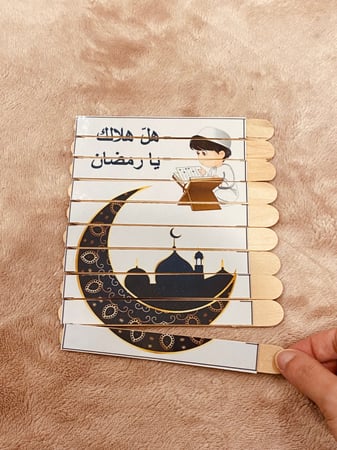 هلّ هلالك
يا رمضان